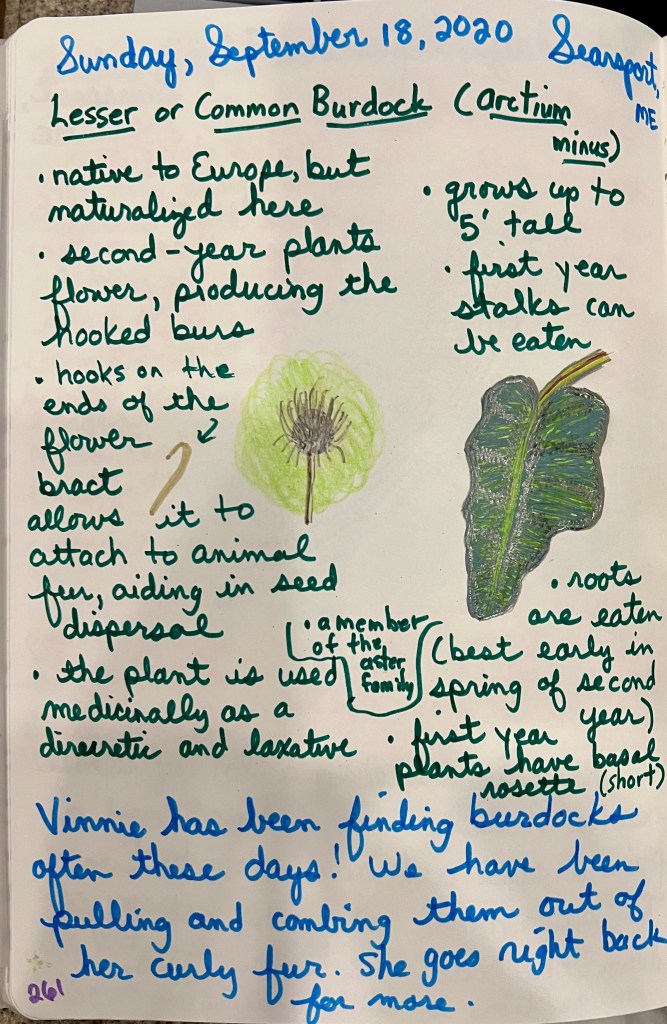 Sunday, September 18, 2020 Searsport,
ME
Lesser or Common Burdock (Arctium
minus)
• native to Europe, but
naturalized here
• second-year plants
flower, producing the
hooked burs
• hooks on the
ends of the
flower
bract
allows it to
attach to animal
fur, aiding in seed
dispersal
• the plant is used
medicinally as a
direuretic and laxative
• grows up to
5' tall
• first year
stalks can
be eaten
• a member
of the
aster
family
• roots
are eaten
(best early in
spring of second
year)
• first year
plants have basal
rosette (short)
Vinnie has been finding burdocks
often these days! We have been
pulling and combing them out of
her curly fur. She goes right back
for more.
261